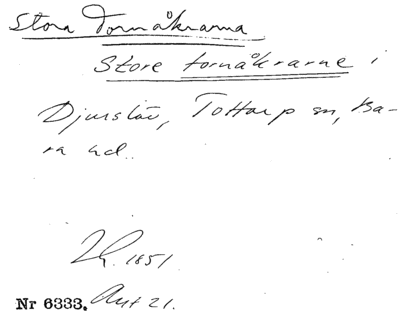 Stora Tornåkrarna
Store tornåkrarne i
Djurslöv, Tottarp sn, Ba-
ra hd.
1851.
Nr 6333. Akt 21.